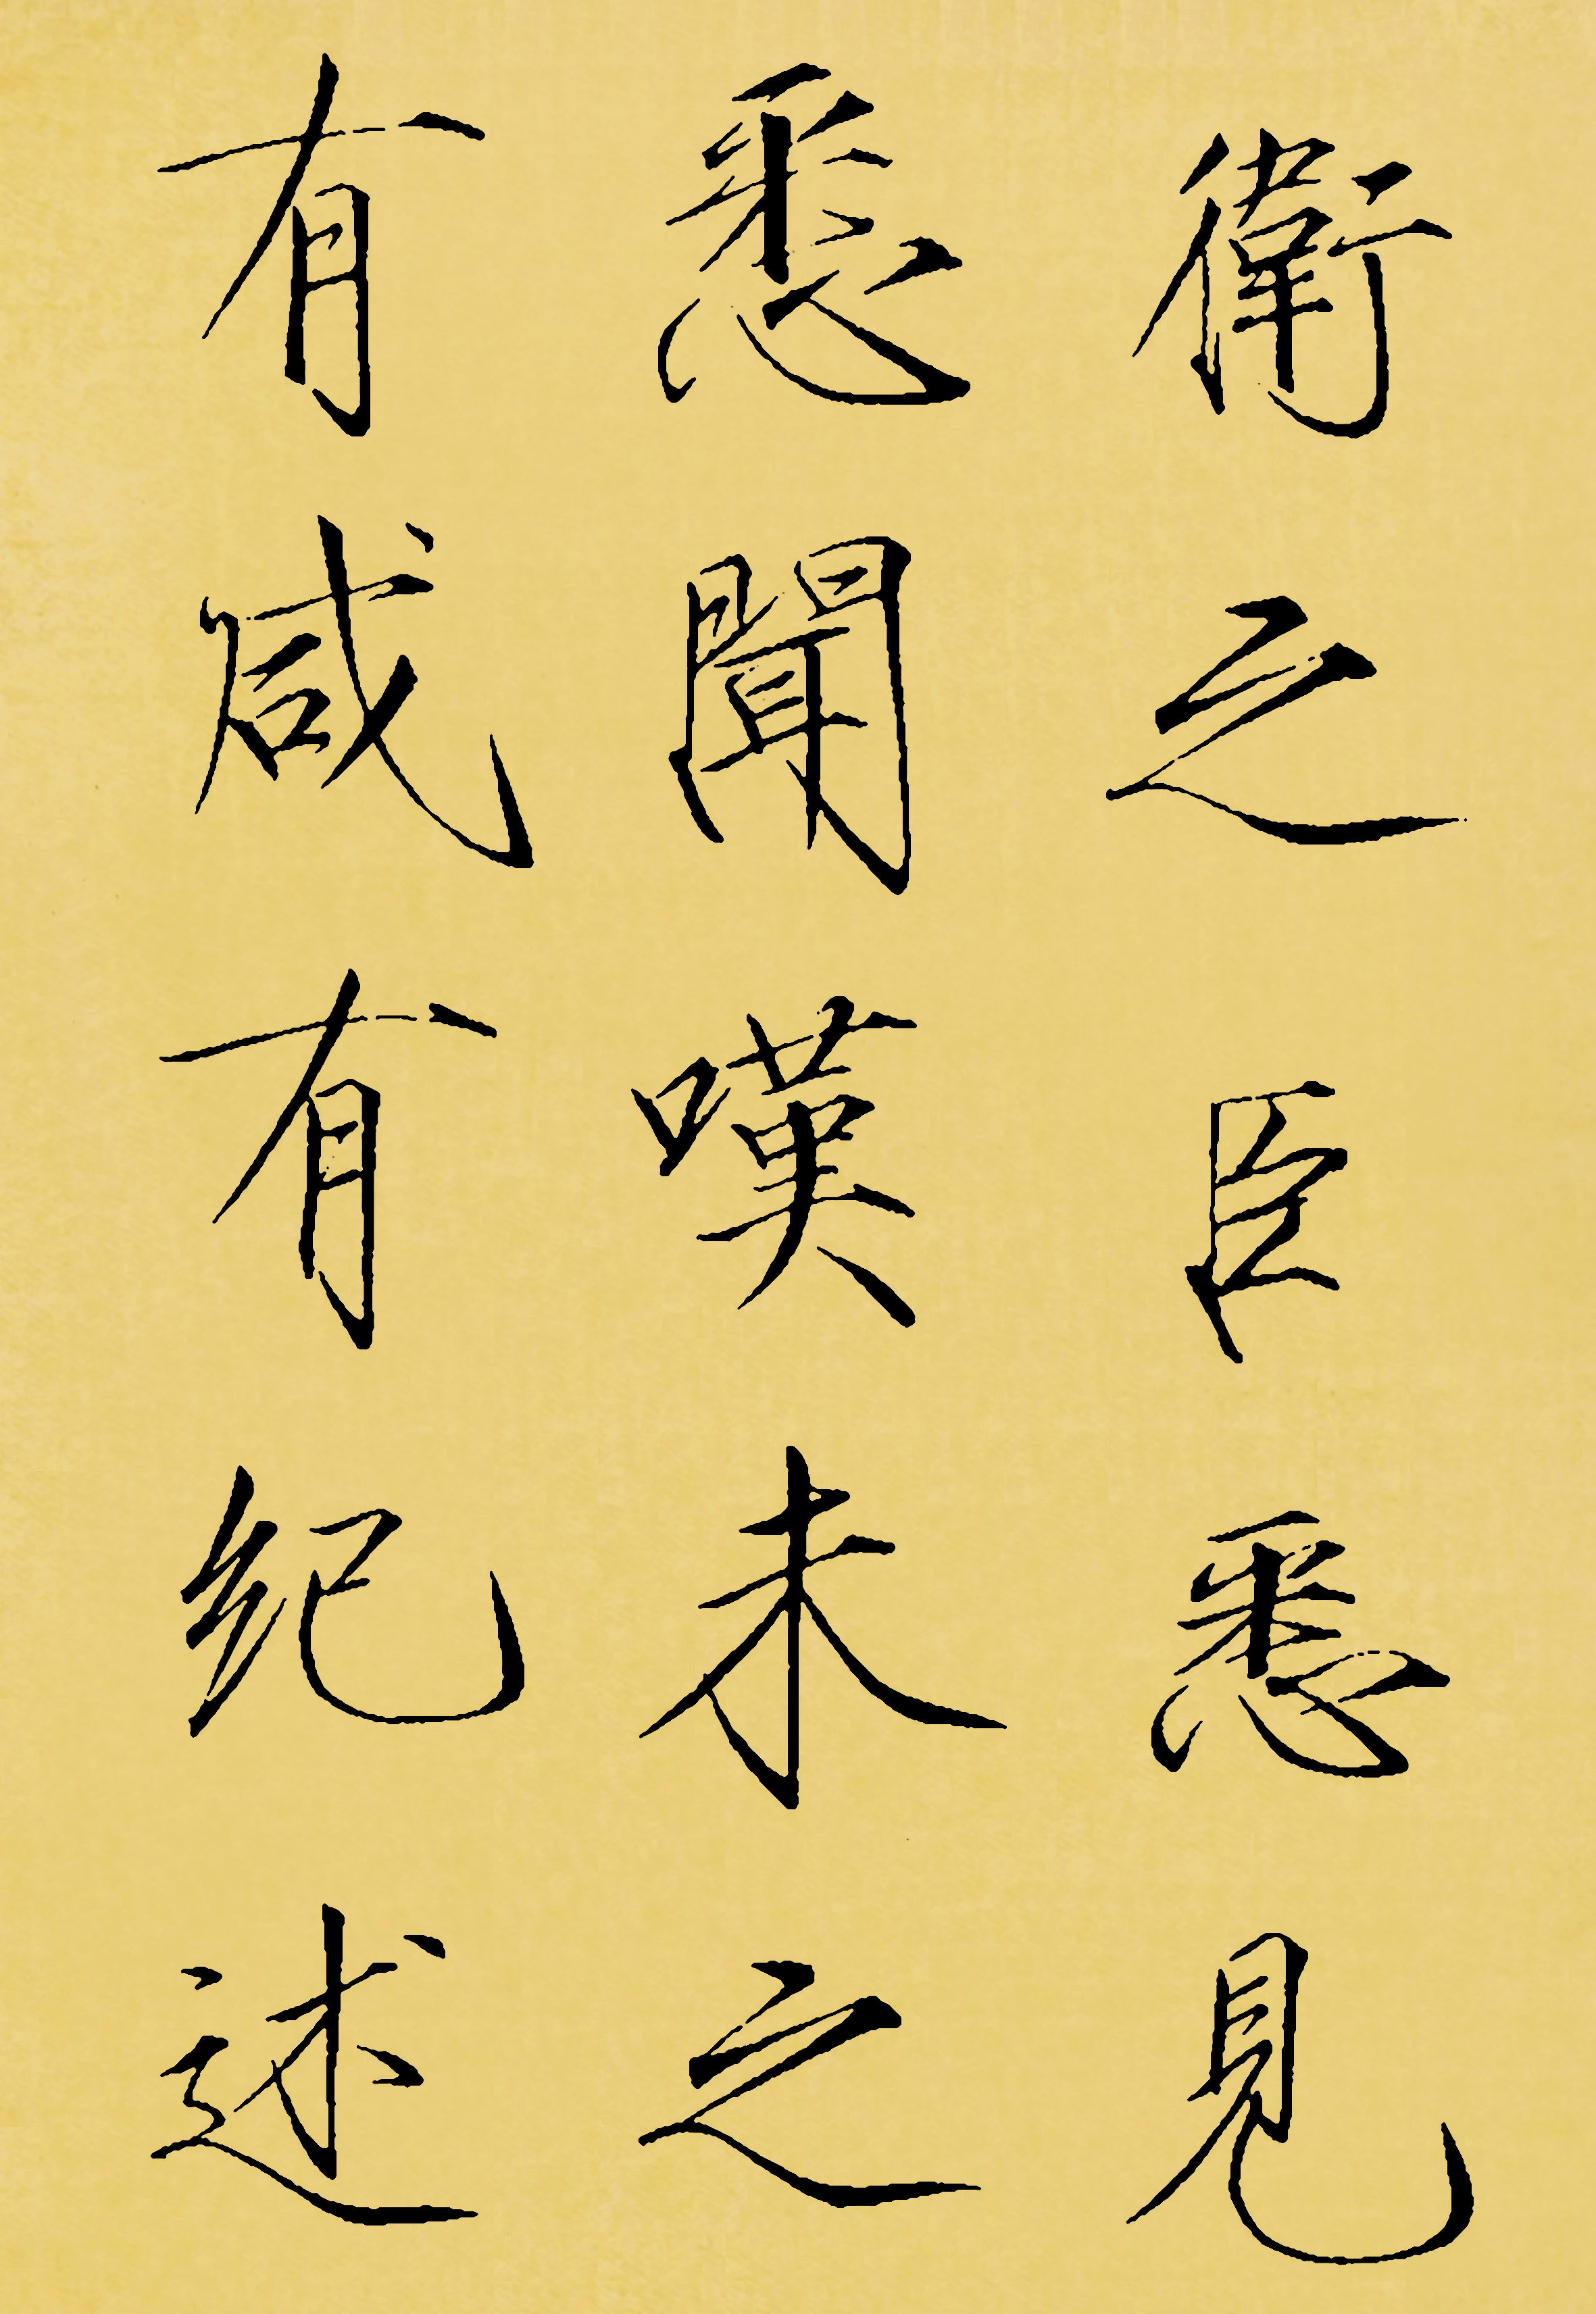 衛之臣悉見
悉聞嘆未之
有咸有紀述